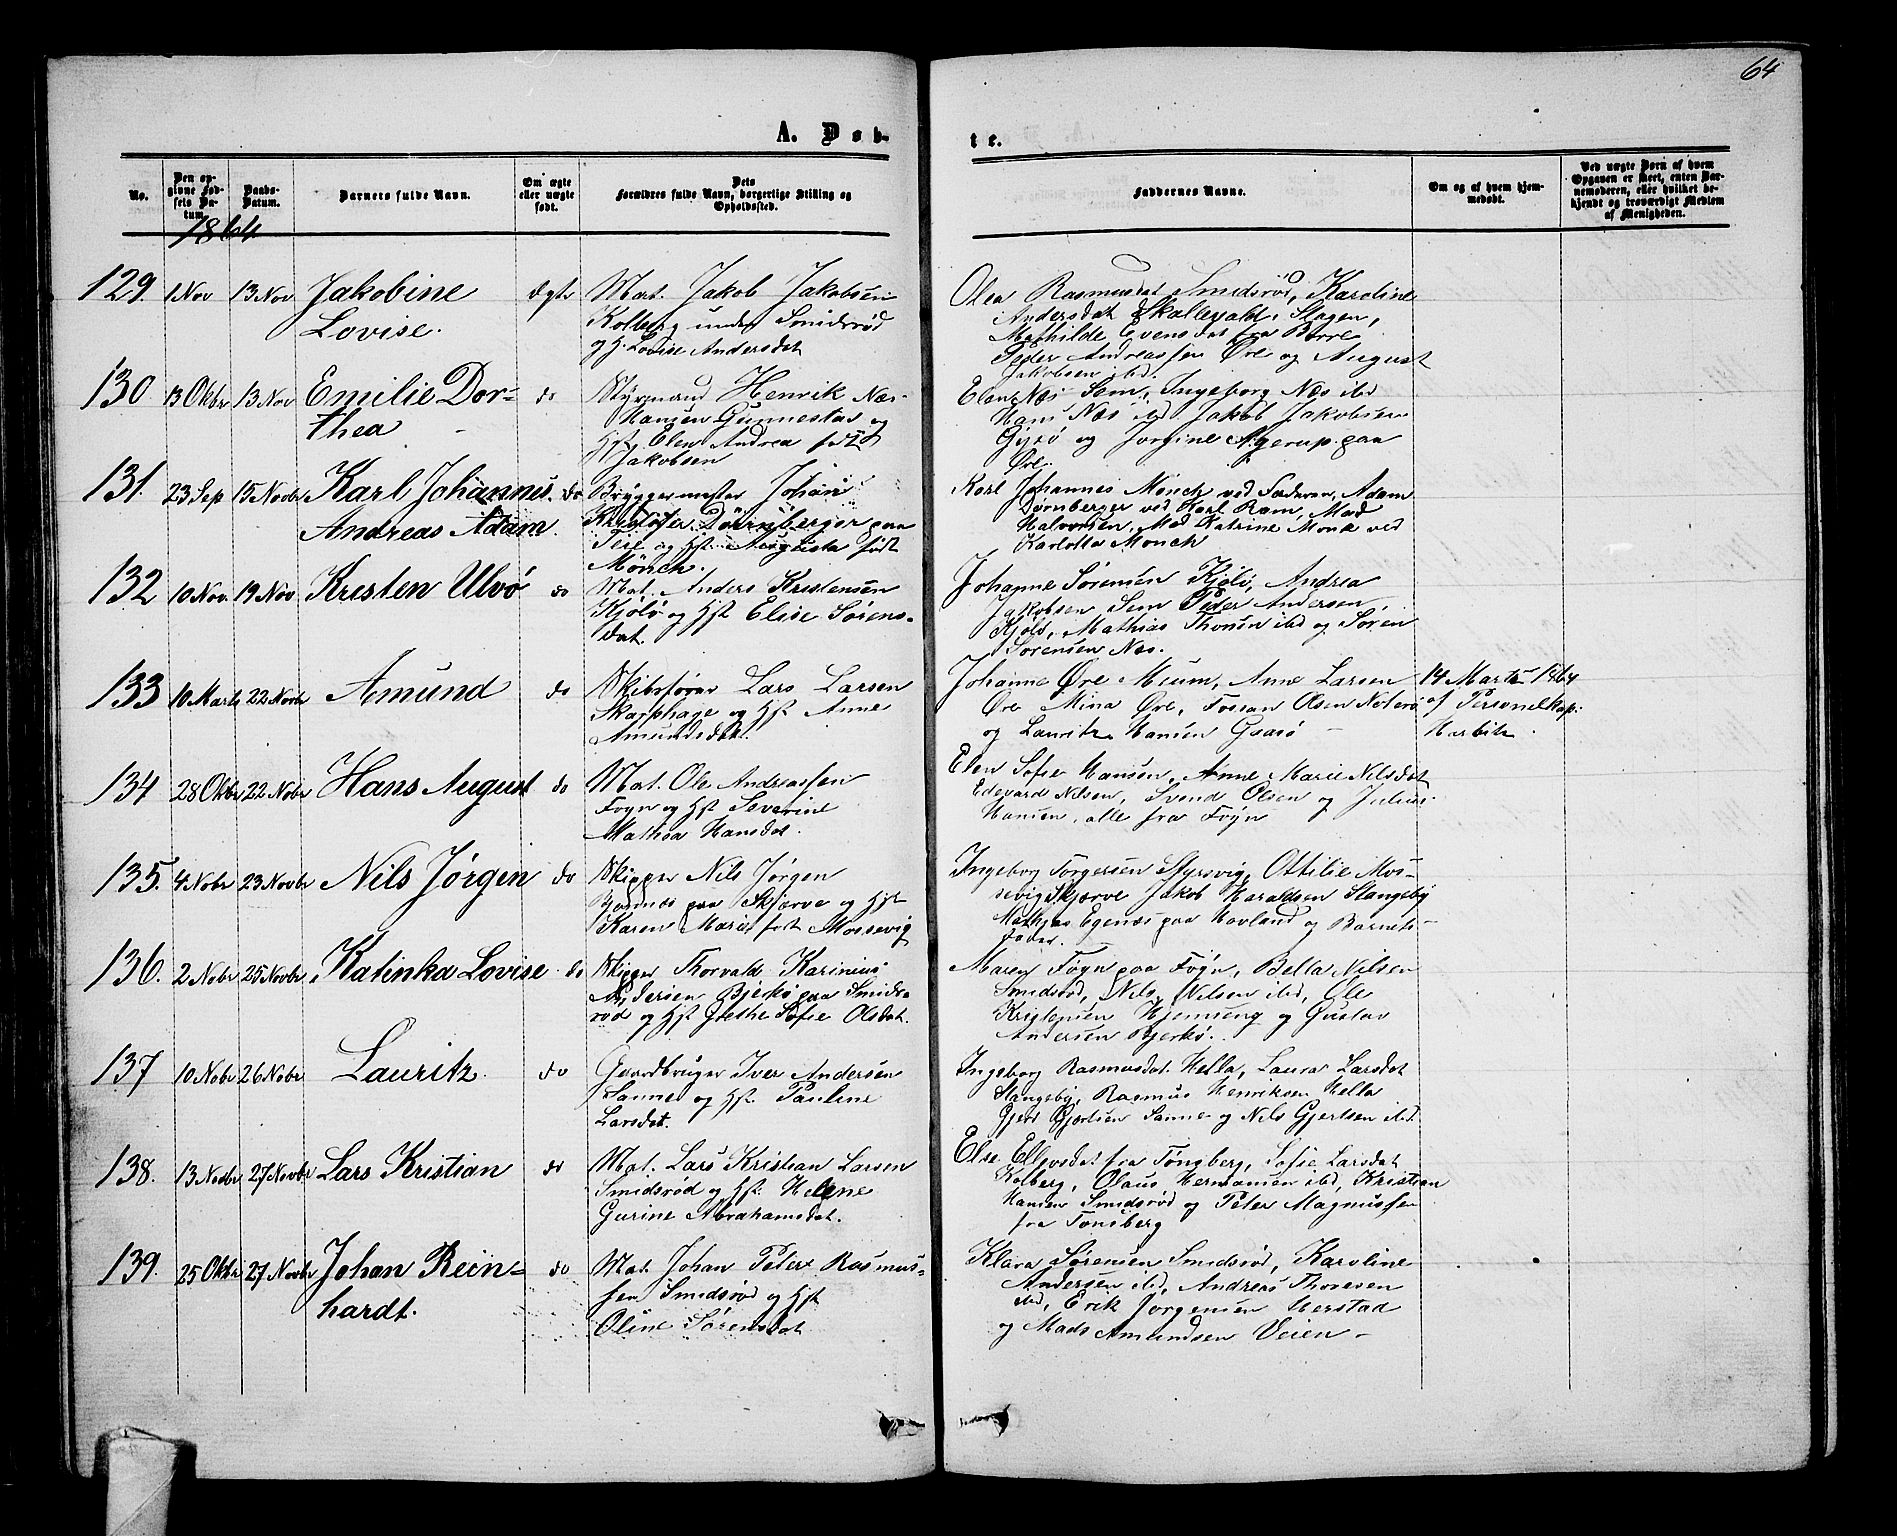 64
A. Døb-
te.
No.
Den op-
givne Fød-
sels Da-
tum.
Daabs-
Datum.
Barnets fulde Navn.
Om ægte
eller uægte
født.
Dets
Forældres fulde Navn, borgerlige Stilling og
Opholdssted.
Faddernes Navne.
Om og af hvem hjem-
medøbt.
Ved uægte Born af hvem
Opgaven er skeet, enten Bar-
nemoderen, eller hvilket be-
kjendt og troværdigt Medlem
af Menigheden.
1864
129. 1 Nov 13 Nov Jakobine
Lovise.
ægte
Mat. Jakob Jakobsen
Kolberg under Smidsrød
og H. Lovise Andersdat
Olea Rasmusdat Smidsrød, Karoline
Andersdat Skallevald, Slagen,
Mathilde Evensdat fra Borre
Peder Andreassen Øre og August
Jakobsen ibd.
130 13 Okbr 13 Nov Emilie Dor-
thea
do
Styrmand Henrik Næs
Hansen Gunnestad og
Hst. Elen Andrea født
Jakobsen
Elen Næs Sem, Ingeborg Næs ibd
Hans Næs ibd Jakob Jakobsen
og Jorgine Agerup paa
Øre.
131. 23 Sep 15 Novbr Karl Johannes
Andreas Adam.
do
Bryggermester Johan
Kristofer Dörnberger paa
Teie og Hst. Augusta født
Mönch.
Karl Johannes Mönch ved Faderen, Adam
Dørnberger ved Karl Ram, Mad
Halvorsen, Mad Katrine Monk ved
Karlotta Monch
132 10 Nov. 19 Nov Kristen Ulvø
do
Mat. Anders Kristensen
Kjølø og Hst Elise Sørens-
dat.
Johanne Sørensen Kjølø, Andrea
Jakobsen Sem Peder Andersen
Kjølø, Mathias Thorsen ibd og Søren
Sørensen Næs.
133 10 Marts 22 Novbr Amund
do
Skibsfører Lars Larsen
Skarphage og Hst Anne
Amundsdat.
Johanne Øre Meum, Anne Larsen
Øre Mina Øre, Olsen Nøterø
og Lauritz Hansen Gaasø
14 Marts 1864
af Personelkap.
Harbitz.
134 28 Okbr 22 Nobr Hans August
do
Mat. Ole Andreassen
Føyn og Hst Severine
Mathea Hansdat.
Elen Sofie Hansen, Anne Marie Nilsdat
Edevard Nilsen, Svend Olsen og Julius
Hansen, alle fra Føyn
135. 4 Nobr 23 Novbr Nils Jørgen
do
Skipper Nils Jørgen
paa Skjærve og Hst
Karen Marie født Mossevig
Ingeborg Torgersen Styrsvig, Ottilie Mos-
sevig Skjærve Jakob Haraldsen Stangeby
Mathias Egenæs paa Hovland og Barnets
Fader.
136. 2 Nobr 25 Novbr Katinka Lovise
do
Skipper Thorvald Karinius
Andersen Bjerkø paa Smids-
rød og Hst Grethe Sofie Olsdat.
Maren Føyn paa Føyn, Bella Nilsen
Smidsrød, Nils Nilsen ibd, Ole
Kristensen Hjemseng og Gustav
Andersen Bjerkø.
137 10 Nobr 26 Nobr Lauritz.
do
Gaardbruger Iver Andersen
Sanne og Hst. Pauline
Larsdat.
Ingeborg Rasmusdat Hella, Laura Larsdat
Stangeby, Rasmus Henriksen Hella
Gjert Gjertsen Sanne og Nils Gjertsen ibd.
138. 13 Nobr 27 Novbr Lars Kristian
do
Mat. Lars Kristian Larsen
Smidsrød og Hst. Helene
Gurine Abrahamsdat.
Else Ellevsdat fra Tøngberg, Sofie Larsdat
Kolberg, Olaus Hermansen ibd, Kristian
Hansen Smidsrød og Peter Magnussen
fra Tønsberg
139. 25 Okbr 27 Novbr Johan Rein-
hardt.
do
Mat. Johan Peter Rasmus-
sen Smidsrød og Hst
Oline Sørensdat
Klara Sørensen Smidsrød, Karoline
Andersen ibd, Andreas Thoresen
ibd, Erik Jorgensen Herstad
og Mads Amundsen Veien